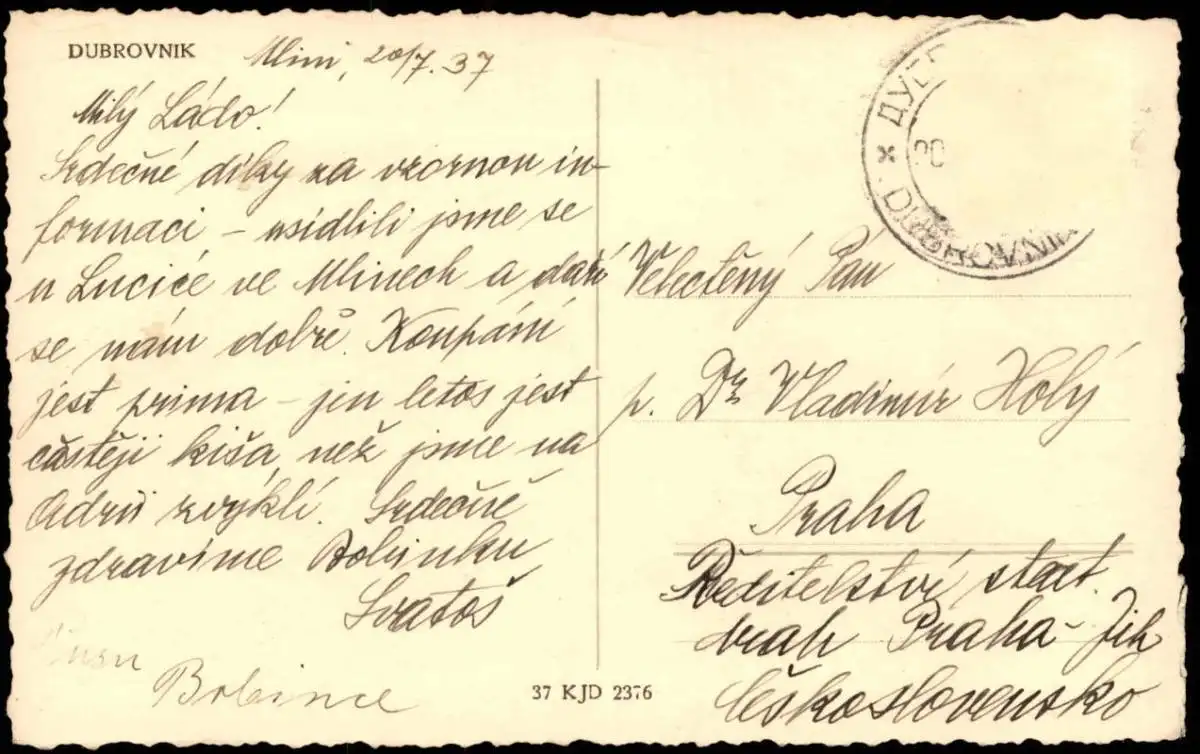 DUBROVNIK
Mlini, 20/7.37
Milý Láďo!
Srdečné díky za vzornou in-
formaci, – usídlili jsme se
u Luciće ve Mlinech a daří
se nám dobře. Koupání
jest prima – jen letos jest
častěji kiša, než jsme na
Adrii zvyklí. Srdečně
zdravíme Bobinku
Svatoš
Bobince
37 KJD 2376
ДУБР
20
DUBROVNIK
Velectěný Pán
p. Dr Vladimír Holý
Praha
Ředitelství stát.
drah Praha-Jih
Československo